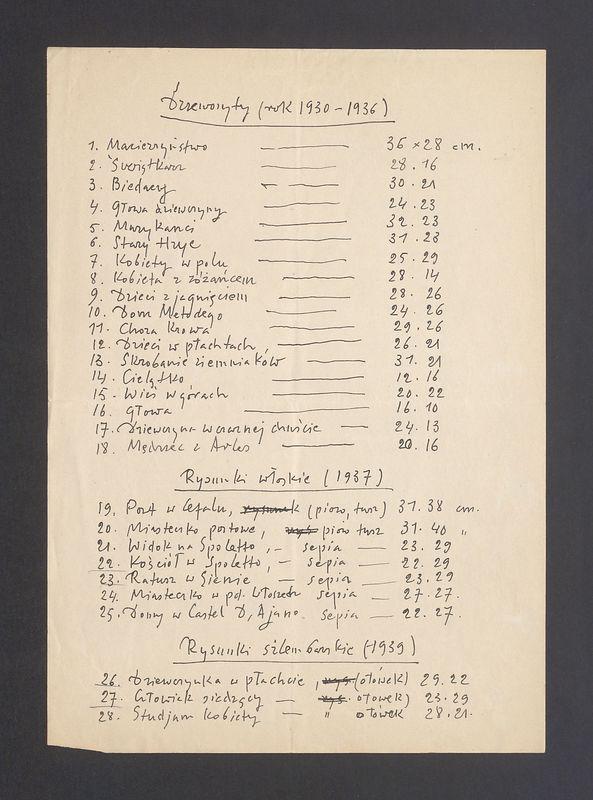 Drzeworyty (rok 1930-1936)
1. Macierzyństwo — 36 x 28 cm.
2. Świątkarz — 28 . 16
3. Biedacy — 30 . 21
4. Głowa dziewczyny — 24 . 23
5. Muzykanci — 32 . 23
6. Stary Hyc — 31 . 23
7. Kobiety w polu — 25 . 29
8. Kobieta z różańcem — 28 . 14
9. Dzieci z jagnięciem — 28 . 26
10. Dom Metodego — 24 . 26
11. Chora Krowa — 29 . 26
12. Dzieci w płachtach — 26 . 21
13. Skrobanie ziemniaków — 31 . 21
14. Cielątko — 12 . 16
15. Wieś w górach — 20 . 22
16. Głowa — 16 . 10
17. Dziewczyna w czarnej chuście — 24 . 13
18. Mędrzec z Arles — 20 . 16
Rysunki włoskie (1937)
19. Port w Cefalu, rysunek (pióro, tusz) 31. 38 cm.
20. Miasteczko portowe, rys pióro tusz 31. 40 "
21. Widok na Spoletto, - sepia — 23. 29
22. Kościół w Spoletto, - sepia — 22. 29
23. Ratusz w Sienie - sepia — 23. 29
24. Miasteczko w pd. Włoszech sepia — 27. 27.
25. Domy w Castel D, Ajano. sepia — 22. 27.
Rysunki szlembarskie (1939)
26. Dziewczynka w płachcie, rys. (ołówek) 29. 22
27. Człowiek siedzący — rys. ołówek) 23. 29
28. Studjum kobiety — " ołówek 28. 21.